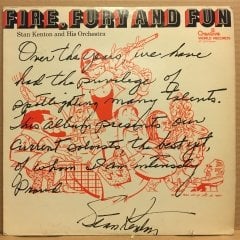 FIRE, FURY AND FUN
Stan Kenton and His Orchestra
Creative
WORLD RECORDS
Over the years, we have
had the privilege of
spotlighting many talents.
This album presents our
current soloists the best yet,
of whom I am intensely
proud
Stan Kenton